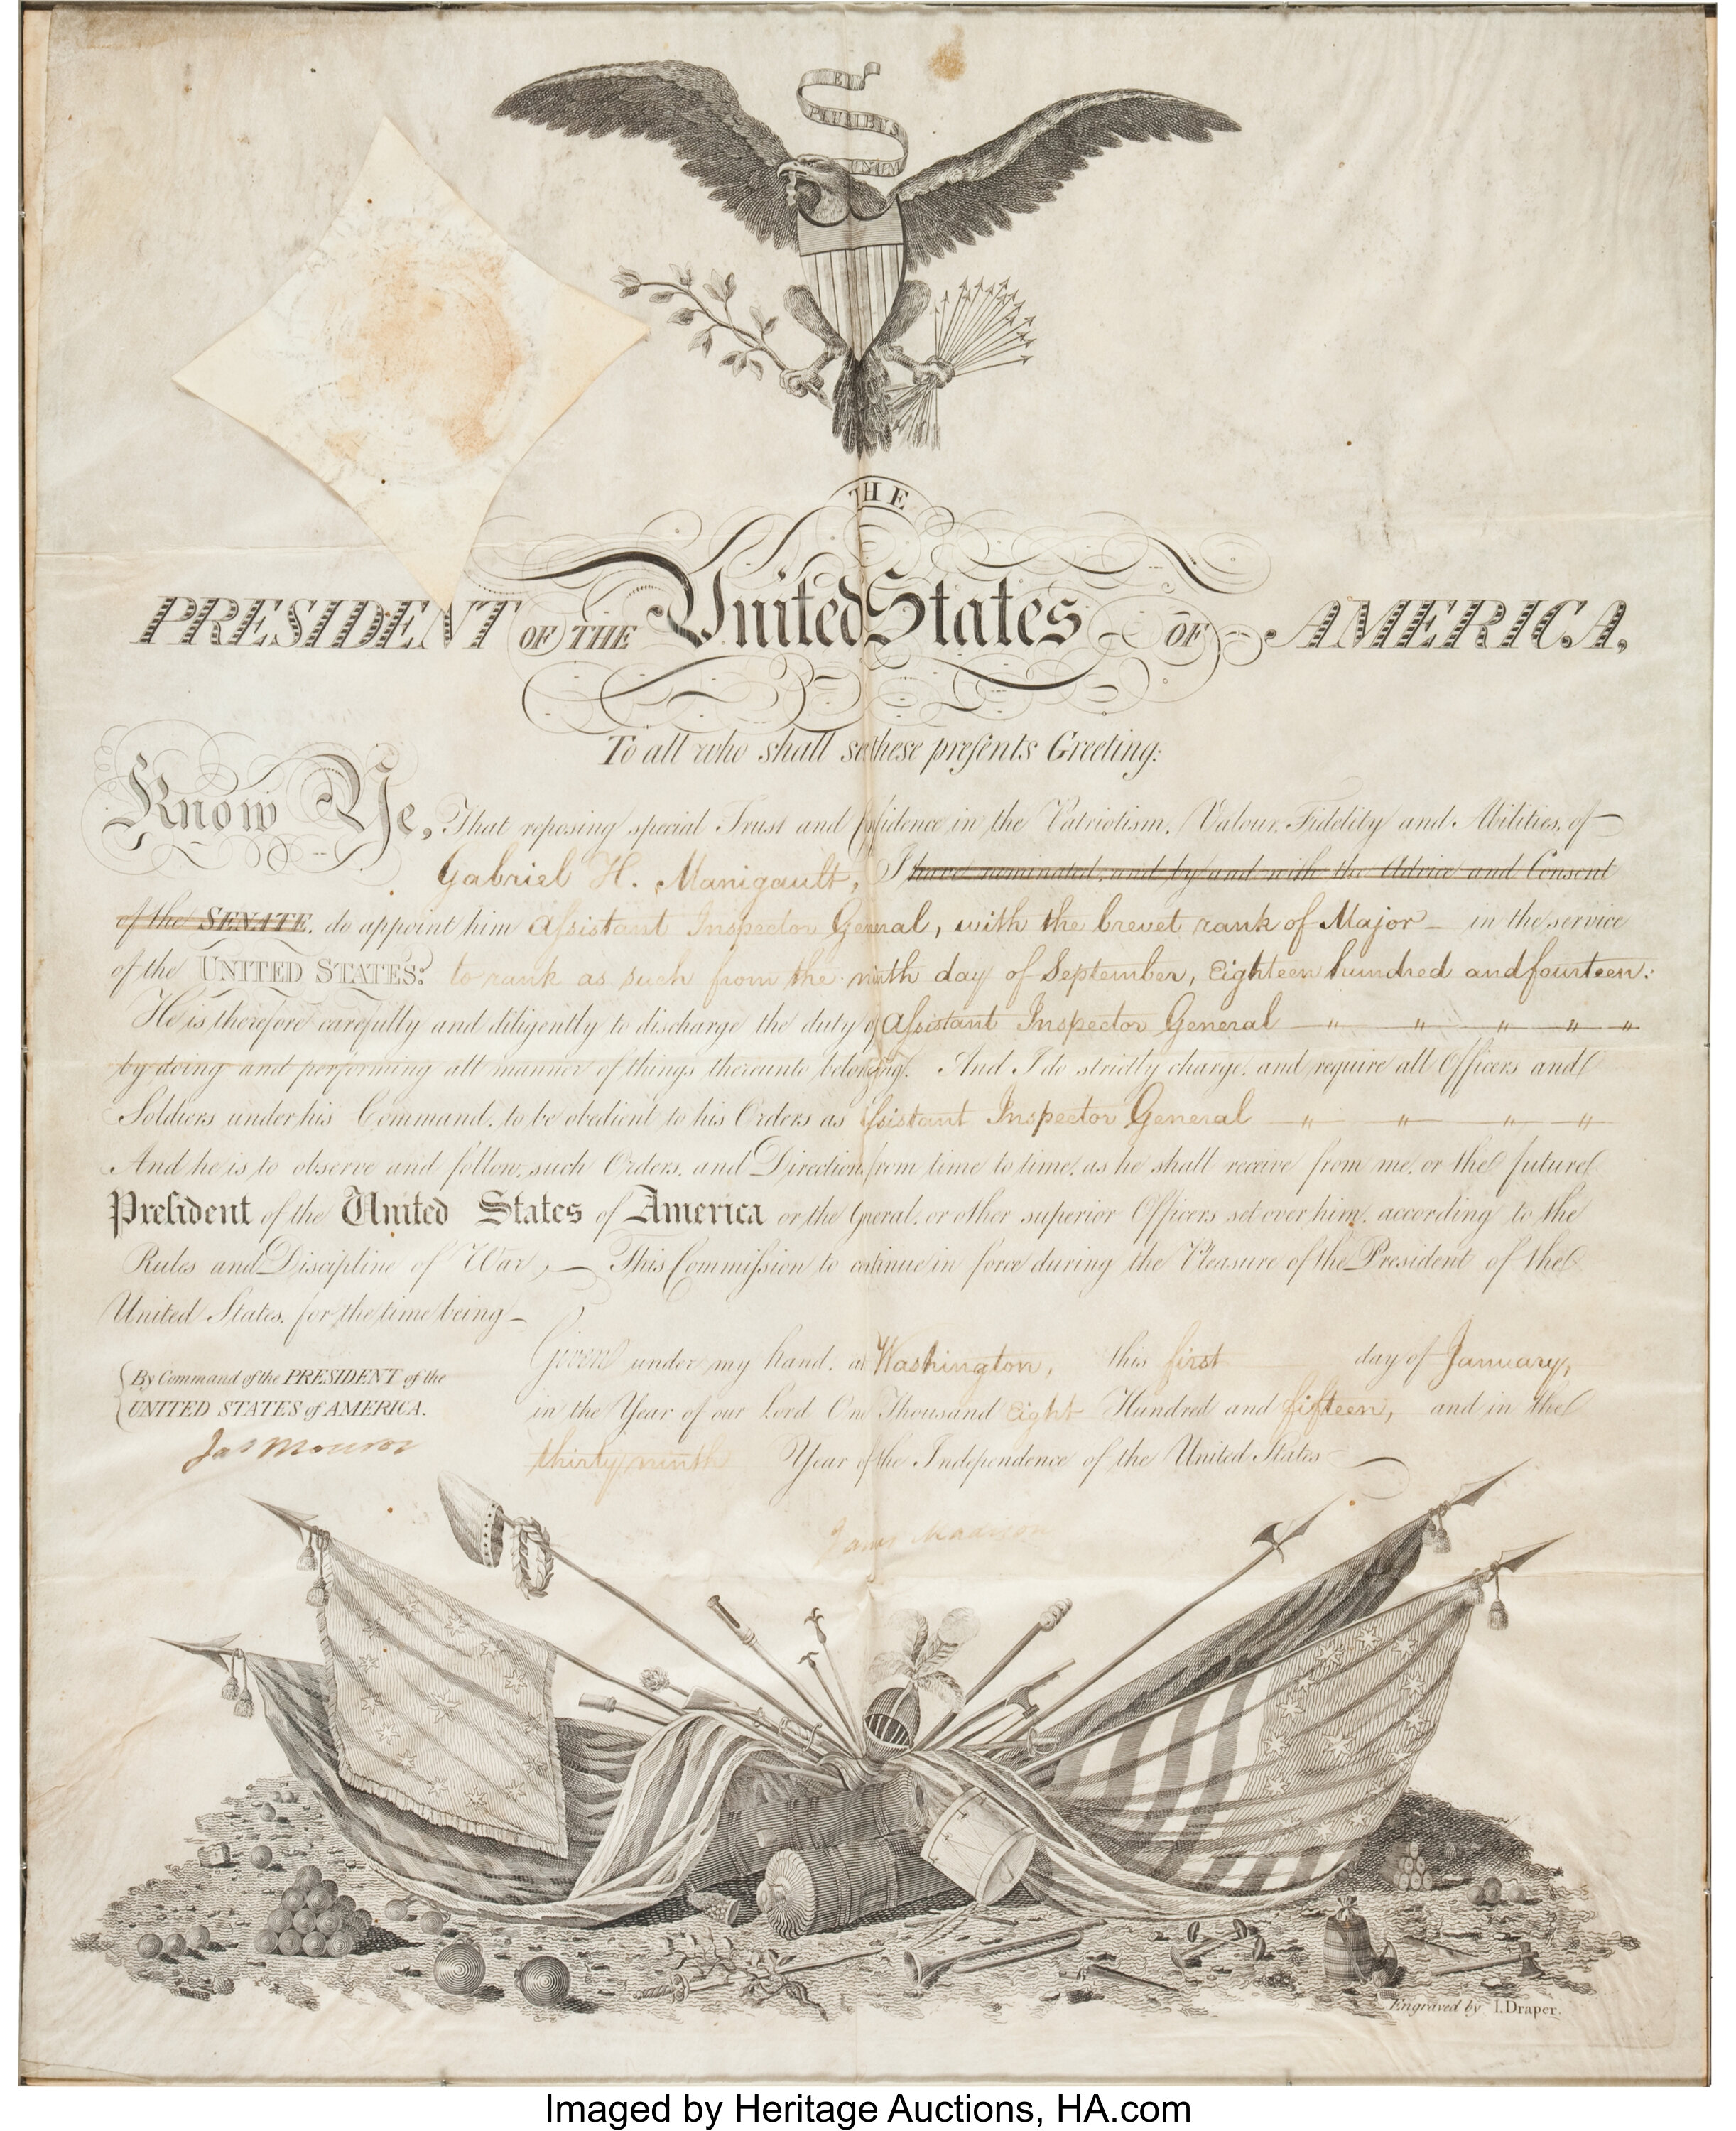 E PLURIBUS UNUM
THE
PRESIDENT OF THE United States OF AMERICA,
To all who shall se these presents Greeting:
Know Ye, That reposing special Trust and fidence in the Patriotism, Valour, Fidelity and Abilities, of
Gabriel H. Manigault, I have nominated, and by and with the Advice and Consent
of the SENATE, do appoint him Assistant Inspector General, with the brevet rank of Major in the service
of the UNITED STATES: to rank as such from the ninth day of September, Eighteen hundred and fourteen:
He is therefore carefully and diligently to discharge the duty of Assistant Inspector General " " " " "
by doing and performing all manner of things thereunto belonging. And I do strictly charge, and require all Officers and
Soldiers under his Command, to be obedient to his Orders as ssistant Inspector General " " " "
And he is to observe and follow, such Orders, and Direction from time to time, as he shall receive from me, or the future
President of the United States of America or the General, or other superior Officers set over him, according to the
Rules and Discipline of War, This Commission to continue in force during the Pleasure of the President of the
United States, for the time being
Given under my hand, at Washington, this first day of January,
in the Year of our Lord One Thousand Eight Hundred and fifteen, and in the
thirty ninth Year of the Independence of the United States
By Command of the PRESIDENT of the
UNITED STATES of AMERICA.
Jas Monroe
James Madison
Engraved by I. Draper.
Imaged by Heritage Auctions, HA.com